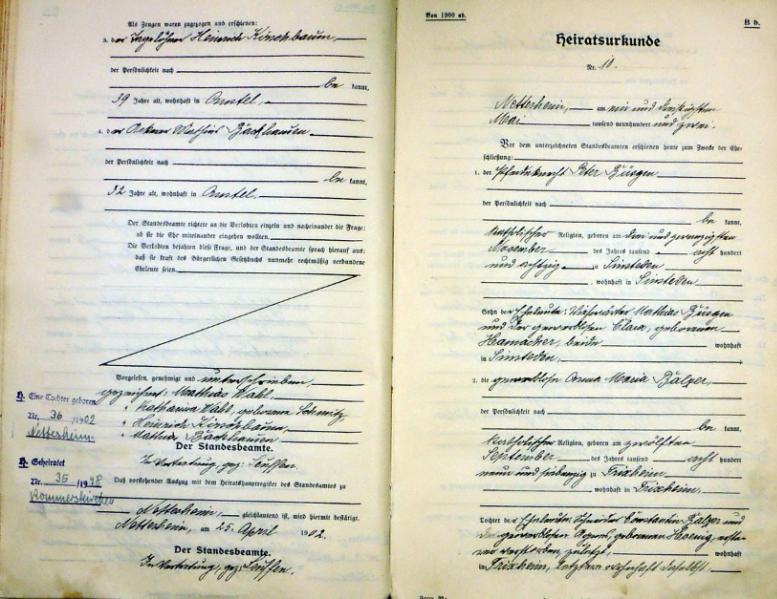 Als Zeugen waren zugezogen und erschienen:
Heinrich Kirschbaum,
der Persönlichkeit nach
be kannt,
39 Jahre alt, wohnhaft in
der Ackerer Mathias Backhausen
der Persönlichkeit nach
be kannt,
32 Jahre alt, wohnhaft in
Der Standesbeamte richtete an die Verlobten einzeln und nacheinander die Frage:
ob sie die Ehe miteinander eingehen wollen.
Die Verlobten bejahten diese Frage, und der Standesbeamte sprach hierauf aus:
daß sie kraft des Bürgerlichen Gesetzbuchs nunmehr rechtmäßig verbundene
Eheleute seien.
Vorgelesen, genehmigt und unterschrieben,
gezeichnet: Matthias Wahl
Katharina Wahl, geborene Schmitz
Heinrich Kirschbaum
Mathias Backhausen
Der Standesbeamte.
In Vertretung, gez: Seiffen.
H. Eine Tochter geboren
Nr. 36 / 1902
Nettersheim
H. Geheiratet
Nr. 35 / 1948
Rommerskirchen
Daß vorstehender Auszug mit dem Heiratshauptregister des Standesamtes zu
Nettersheim, gleichlautend ist, wird hiermit bestätigt.
Nettersheim, am 25. April 1902.
Der Standesbeamte.
In Vertretung, gez: Seiffen.
Von 1900 ab.
B b.
Heiratsurkunde
Nr. 10.
Nettersheim, am ein und dreißigsten
Mai tausend neunhundert und zwei.
Vor dem unterzeichneten Standesbeamten erschienen heute zum Zwecke der Ehe-
schließung:
1. der Pferdeknecht Peter Büsgen
der Persönlichkeit nach
be kannt,
katholischer Religion, geboren am drei und zwanzigsten
November des Jahres tausend acht hundert
und achtzig zu Sinsteden
, wohnhaft in Sinsteden
Sohn der Eheleute: Mathias Büsgen
und der gewerblosen Clara, geborenen
Hamacher, beide wohnhaft
in Sinsteden.
2. die gewerblose Anna Maria Balzer,
der Persönlichkeit nach
be kannt,
katholischer Religion, geboren am zwölften
September des Jahres tausend acht hundert
neun und siebenzig zu Frixheim
, wohnhaft in Frixheim,
Tochter der Eheleute: Schneider Konstantin Balzer und
der gewerblosen Agnes, geborenen
verstorben, zuletzt wohnhaft
in Frixheim, letztere wohnhaft daselbst.